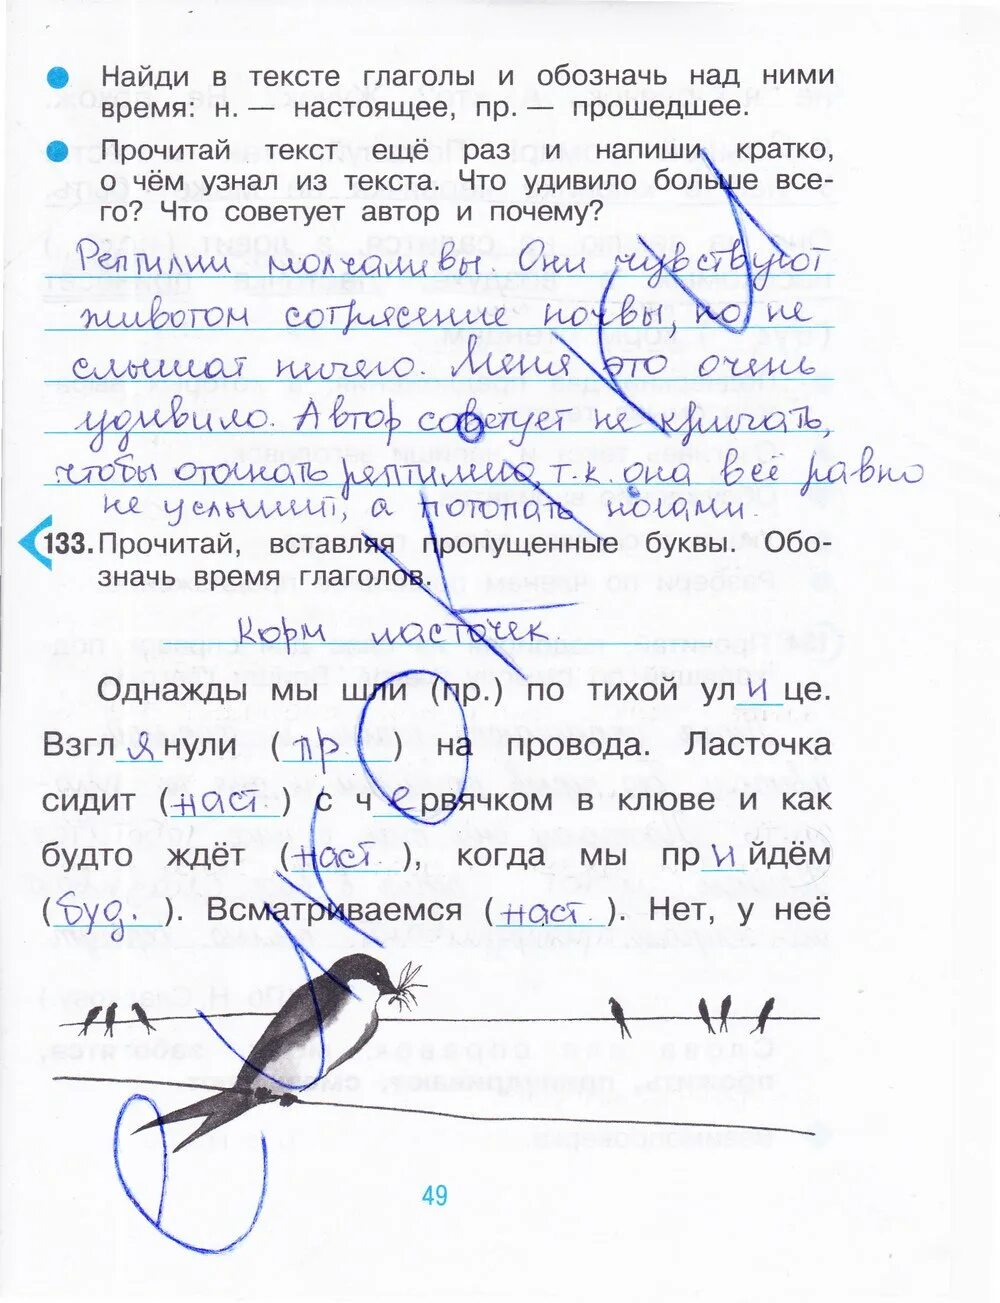 Найди в тексте глаголы и обозначь над ними
время: н. — настоящее, пр. — прошедшее.
Прочитай текст ещё раз и напиши кратко,
о чём узнал из текста. Что удивило больше все-
го? Что советует автор и почему?
Рептилии молчаливы. Они чувствуют
животом сотрясение почвы, но не
слышат ничего. Меня это очень
удивило. Автор советует не кричать,
чтобы отогнать рептилию, т.к. она всё равно
не услышит, а потопать ногами.
133. Прочитай, вставляя пропущенные буквы. Обо-
значь время глаголов.
Корм ласточек
Однажды мы шли (пр.) по тихой улице.
Взглянули (пр.) на провода. Ласточка
сидит (наст.) с червячком в клюве и как
будто ждёт (наст.), когда мы прийдём
(буд.). Всматриваемся (наст.). Нет, у неё
49